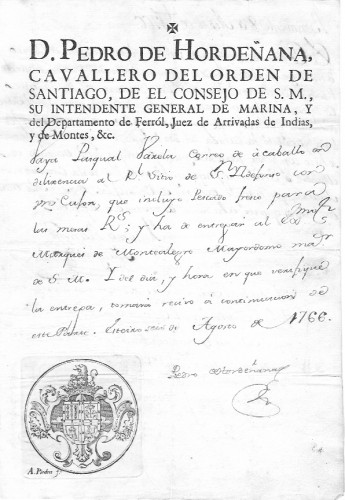 D. PEDRO DE HORDEÑANA,
CAVALLERO DEL ORDEN DE
SANTIAGO, DE EL CONSEJO DE S. M.,
SU INTENDENTE GENERAL DE MARINA, Y
del Departamento de Ferról, Juez de Arrivadas de Indias,
y de Montes, &c.
Vaya Pasqual Varela Correo de à caballo en
diligencia al Rl. Sitio de Sn. Ildefonso con
un Caxon, que incluye Pescado fresco para
las mesas Rs; y ha de entregar al
Marques de Montealegre Mayordomo mar.
de S. M. I del dia, y hora en que verifique
la entrega, tomará recivo á continuacion de
este Parte. de Agosto de 1766.
Pedro de Hordeñana
A. Piedra f.